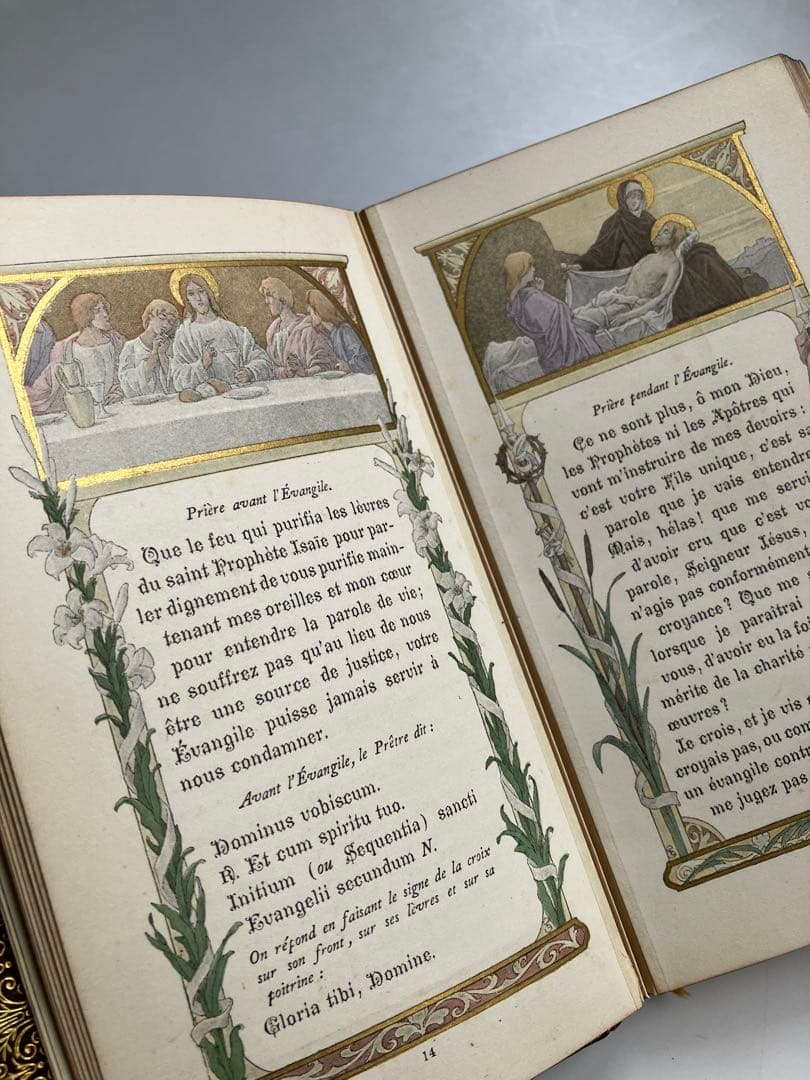 Prière avant l'Évangile.
Que le feu qui purifia les lèvres
du saint Prophète Isaïe pour par-
ler dignement de vous purifie main-
tenant mes oreilles et mon cœur
pour entendre la parole de vie;
ne souffrez pas qu'au lieu de nous
être une source de justice, votre
Évangile puisse jamais servir à
nous condamner.
Avant l'Évangile, le Prêtre dit :
Dominus vobiscum.
℟. Et cum spiritu tuo.
Initium (ou Sequentia) sancti
Evangelii secundum N.
On répond en faisant le signe de la croix
sur son front, sur ses lèvres et sur sa
poitrine :
Gloria tibi, Domine.
14
Prière pendant l'Évangile.
Ce ne sont plus, ô mon Dieu,
les Prophètes ni les Apôtres qui
vont m'instruire de mes devoirs :
c'est votre Fils unique, c'est sa
parole que je vais entendre
Mais, hélas! que me servi
d'avoir cru que c'est vo
parole, Seigneur Jésus,
n'agis pas conformément
croyance? Que me s
lorsque je paraîtrai
vous, d'avoir eu la foi
mérite de la charité
œuvres?
Je crois, et je vis
croyais pas, ou com
un évangile contr
me jugez pas